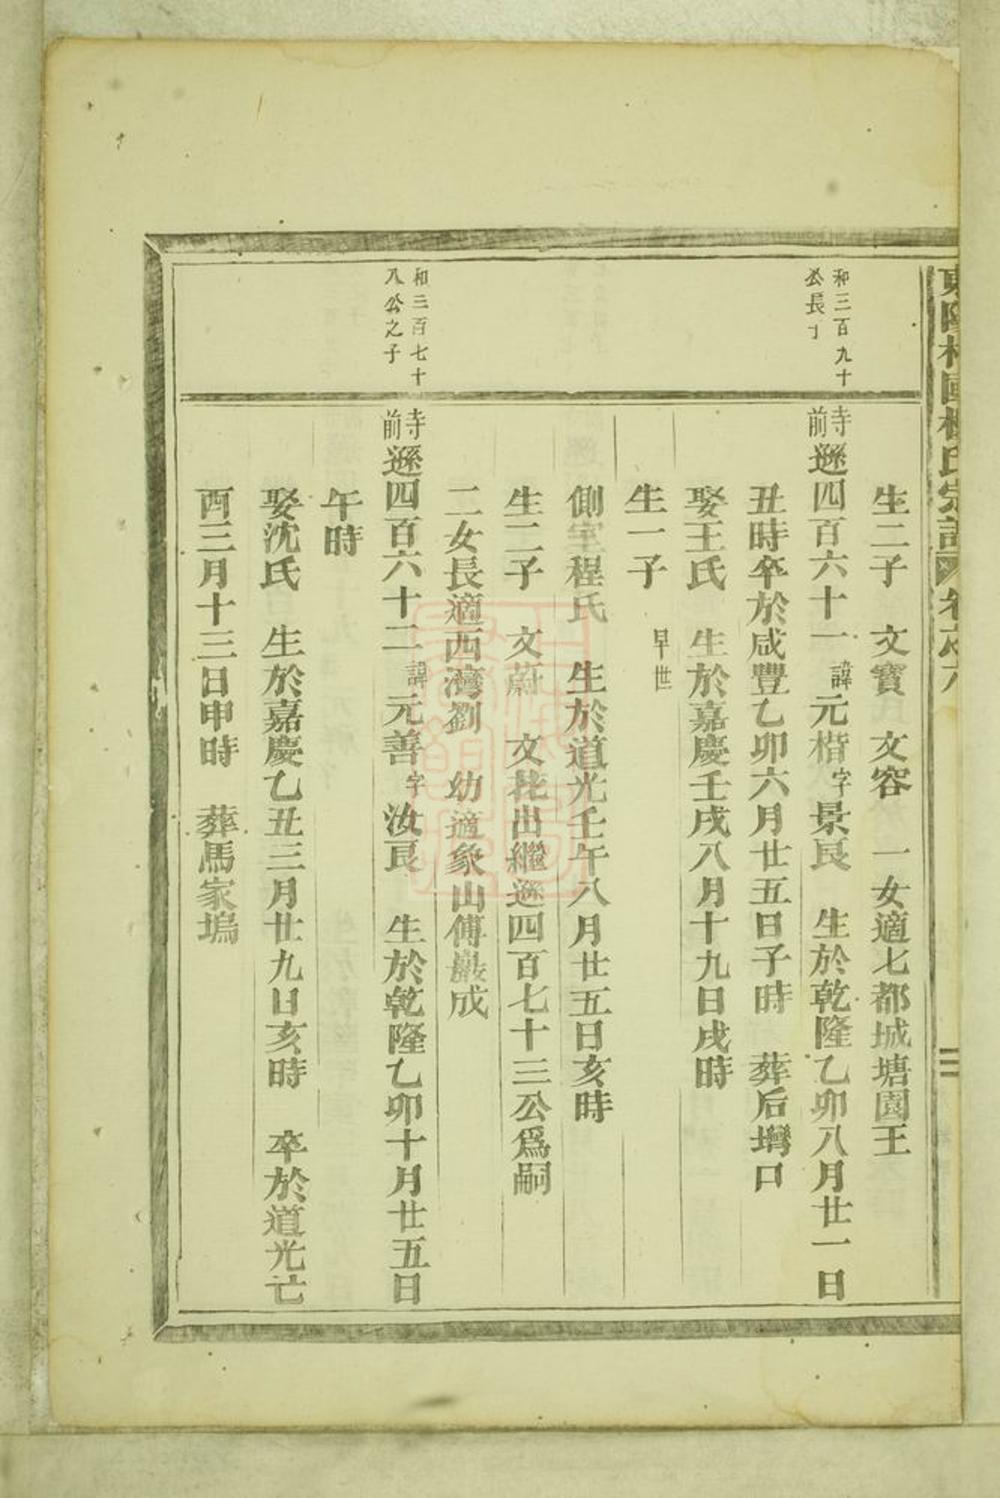 生二子　文寳　文容　一女適七都城塘園王
和三百九十
公長丁
寺前遜四百六十一諱元楷字景良　生於乾隆乙卯八月廿一日
丑時卒於咸豐乙卯六月廿五日子時　葬后塆口
娶王氏　生於嘉慶壬戌八月十九日戌時
生一子　早世
側室程氏　生於道光壬午八月廿五日亥時
生二子　文蔚　文 出繼遜四百七十三公爲嗣
二女長適西灣劉　幼適象山傅巖成
和三百七十
八公之子
寺前遜四百六十二諱元善字汝良　生於乾隆乙卯十月廿五日
午時
娶沈氏　生於嘉慶乙丑三月廿九日亥時　卒於道光亡
酉三月十三日申時　葬馬家塢